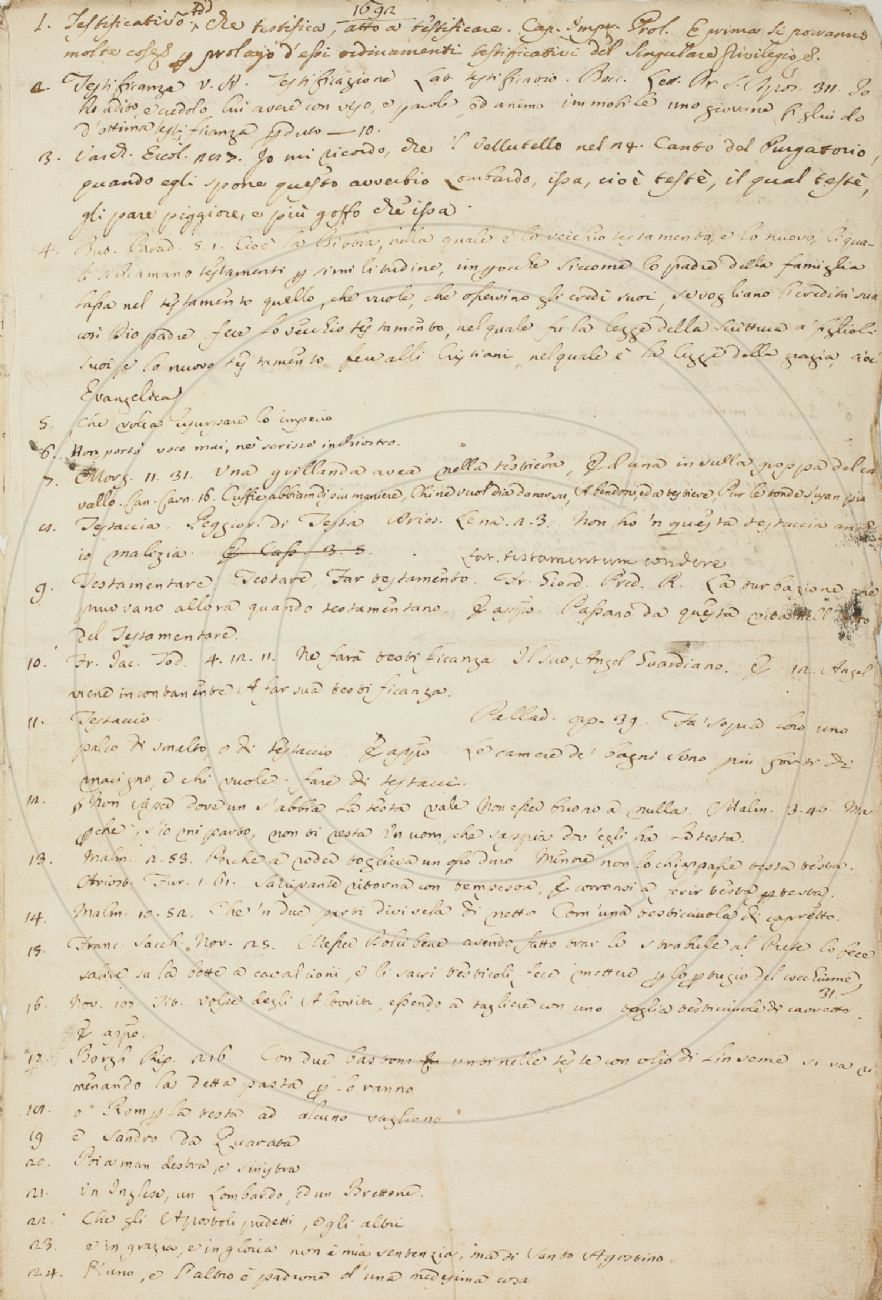 1692
1. Testificativo Add. che testifica, atto a testificare. Cap. Impr. Prol. E prima si porranno
molte cose & p prolago d'essi ordinamenti testificativi del Singulare Privilegio, &.
2. Testificanza V. A. Testificazione Lat. testificatio. Bocc. Lett. Pr. S. Apos. 311. Io
ho udito, e credolo, lui avere con viso, e parole, ed animo immobile uno giovane figliuolo
d'ottima testificanza perduto — 10.
3. Varch. Ercol. 207. Io mi ricordo, che 'l Vellutello nel 24. Canto del Purgatorio,
quando egli spone questo avverbio Lombardo, issa, cioè testè, il qual testè,
gli pare piggiore, e più goffo che issa.
4. But. Parad. 5. 1. Cioè la Bibbia, nella quale è lo vecchio testamento, e lo nuovo, li qua-
li si chiamano testamenti p similitudine, imperocchè siccome lo padre della famiglia
lassa nel testamento quello, che vuole, che osservino gli eredi suoi, se vogliano l'eredità sua
così Dio padre fece lo vecchio testamento, nel quale fu la legge della Scrittura a' figliuoli
suoi, e lo nuovo testamento fece alli Cristiani, nel quale è la legge della grazia, cioè
Evangelica
5. che volea usurpare lo imperio
6. Non portò voce mai, nè scrisse inchiostro.
7. Morg. 11. 31. Una grillanda avea nella testiera, E d'una insulla groppa del ca
vallo. Can. Carn. 16. Cuffie abbiam di più maniere, Chi ne vuol dia danar su, A bendoni, e da testiere Pur le tonde s'usan più
8. Testaccia. Peggior. di Testa Arios. Lena. 2. 3. Non ho 'n questa testaccia
io malizia. E Cass. 3. 5. Lat. testamentum condere
9. Testamentare Testare Far testamento. Fr. Giord. Pred. R. La turbazione che
pruovano allora quando testamentano. E appo. Passano da questa vita
del Testamentare.
10. Fr. Jac. Tod. 4. 12. 11. Ne farà testificanza Il suo Angel Guardiano. E 12. Angel
viene incontanente A far sua testificanza.
11. Testaccio. Pallad. cap. 39. Fa' sopra loro uno
palco di smalto, o di testaccio. E appo. Le camere de' bagni sono più forti di
macigno, e chi vuole fare di testacci.
12. p Non saper dove un s'abbia la testa vale Non esser buono a nulla. Malm. 3. 46 Ma
pche, s'io mi parto, non vi resta Un uom, che sappia dov'egli ha la testa.
13. Malm. 2. 53. Perche a roder toglieva un osso duro Mentre non lo chiappasse testa testa.
Ariost. Fur. 1. 61. Sacripante ritorna con tempesta, E corronsi a ferir testa p testa.
14. Malm. 10. 52. Che 'n due parti divisela di netto Com'una testicciuola di capretto.
15. Franc. Sacch. Nov. 25. Messer Dolcibene avendo fatto trar le strabelle al Prete lo fece
salire su la botte a cavalcioni, e li sacri testicoli fece mettere p lo ptugio del cocchiume
31.
16. Nov. 107. Tit. Volpe degli Altoviti, essendo a tagliere con uno taglia testicciuole di cavretto.
E appo.
17. Borgh. Rip. 216 Con due bastoni E unti nelle teste con olio di lin seme si va ri
menando la detta pasta p lo ranno
18. o Romp la testa ad alcuno vagliono
19. e Sandro da Quarata
20. Poi a man destra, e sinistra
21. Un Inglese, un Lombardo, ed un Brettone.
22. Che gli Apostoli predetti, e gli altri
23. e in grazia, e in gloria non è mia sentenzia, ma di Santo Agostino.
24. L'uno, e l'altro è padrone d'una medesima cosa